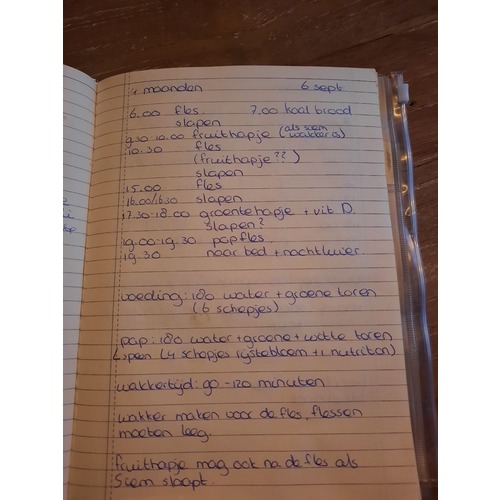 maanden 6 sept.
6.00 fles. 7.00 hoal brood
slapen
9.30-10.00 fruithapje (als siem wakker is)
10.30 fles
(fruithapje??)
slapen
15.00 fles
16.00/16.30 slapen
17.30-18.00 groentehapje + vit D.
slapen?
19.00-19.30 papfles.
19.30 naar bed + nachtluier.
voeding: 180 water + groene toren
(6 schepjes)
pap: 180 water + groene + witte toren
speen (4 schepjes rijstebloem + 1 nutriton)
wakkertijd: 90-120 minuten
wakker maken voor de fles, flessen
moeten leeg.
fruithapje mag ook na de fles als
Siem slaapt.